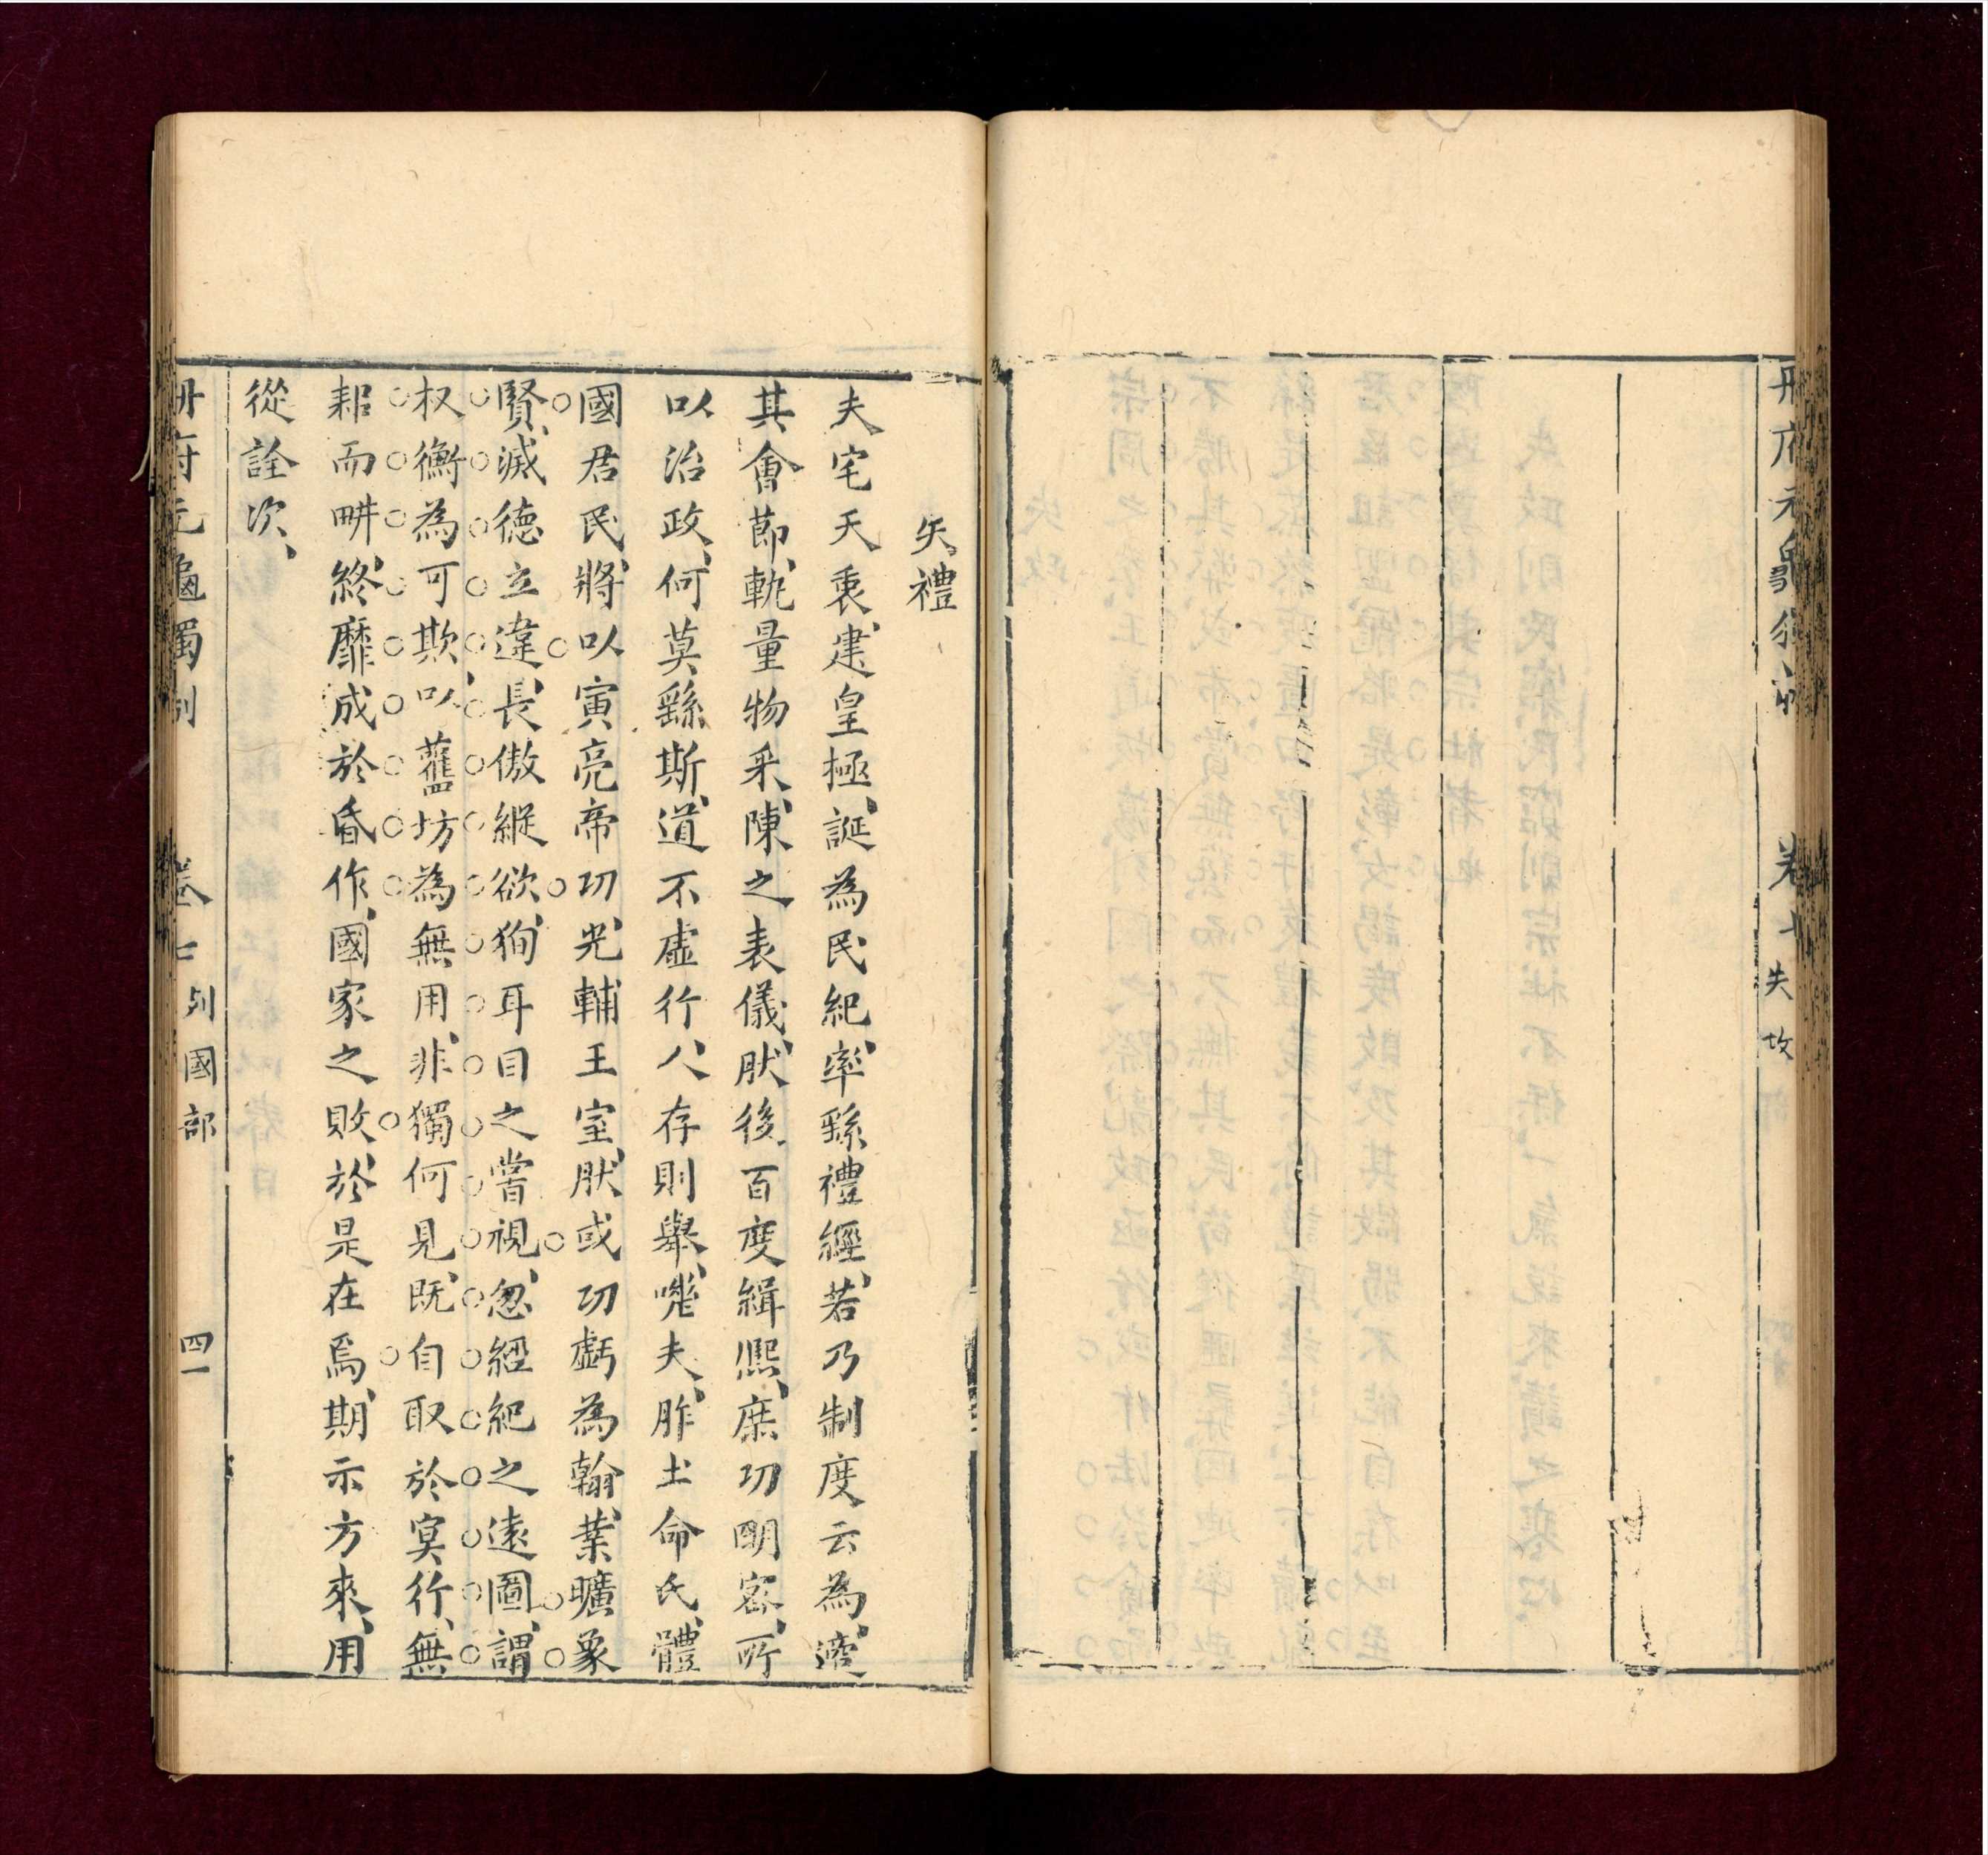 冊府元龜獨制 卷七 失政
失禮
夫宅天衷建皇極誕為民紀率繇禮經若乃制度云為
其會節軌量物采陳之表儀肰後百度緝熙庶功明密所
以治政何莫繇斯道不虛行人存則舉嘅夫胙土命氏體
國君民將以寅亮帝功光輔王室肰或功虧為翰業曠象
賢滅德立違長傲縱欲狥耳目之嘗視忽經紀之遠圖謂
权衡為可欺以舊坊為無用非獨何見既自取於冥行無
耜而畊終靡成於昏作國家之敗於是在焉期示方來用
從詮次
冊府元龜獨制 卷七 列國部 四一